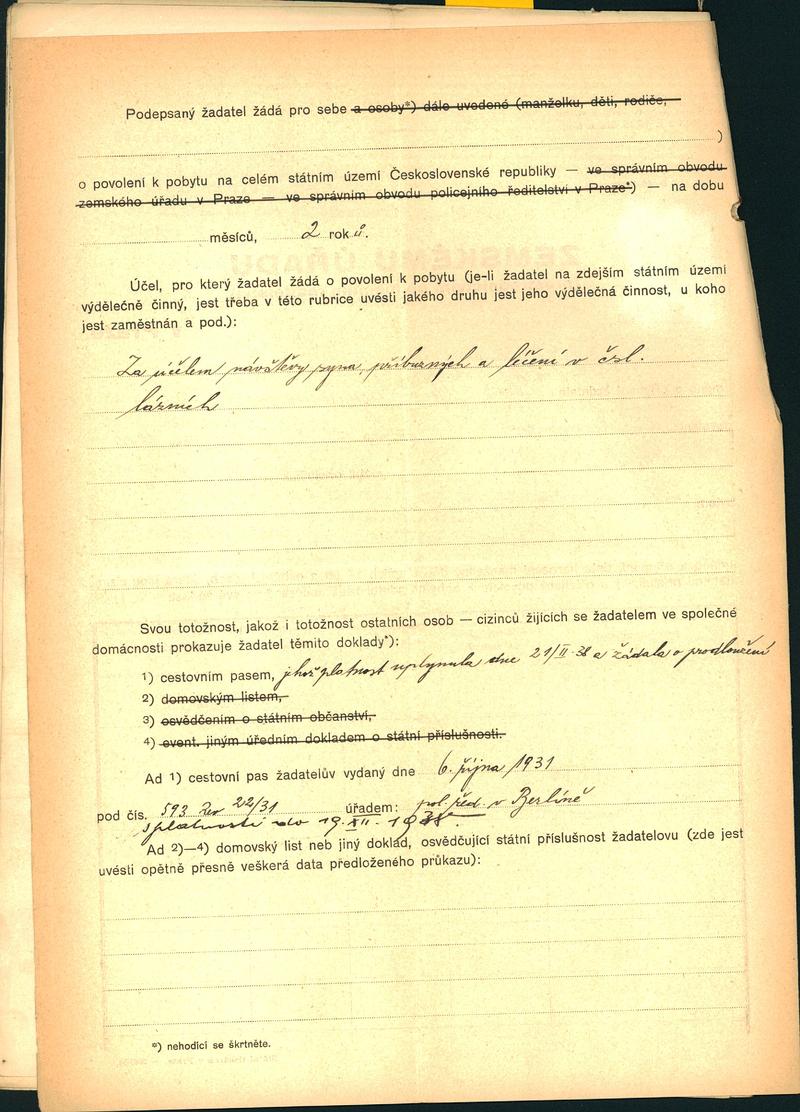 Podepsaný žadatel žádá pro sebe a osoby*) dále uvedené (manželku, děti, rodiče,
)
o povolení k pobytu na celém státním území Československé republiky — ve správním obvodu
zemského úřadu v Praze — ve správním obvodu policejního ředitelství v Praze*) — na dobu
měsíců, 2 roků.
Účel, pro který žadatel žádá o povolení k pobytu (je-li žadatel na zdejším státním území
výdělečně činný, jest třeba v této rubrice uvésti jakého druhu jest jeho výdělečná činnost, u koho
jest zaměstnán a pod.):
Za účelem návštěvy syna, příbuzných a léčení v čsl.
lázních
Svou totožnost, jakož i totožnost ostatních osob — cizinců žijících se žadatelem ve společné
domácnosti prokazuje žadatel těmito doklady*):
1) cestovním pasem, jehož platnost uplynula dne 21/II·38 a žádala o prodloužení
2) domovským listem,
3) osvědčením o státním občanství,
4) event. jiným úředním dokladem o státní příslušnosti.
Ad 1) cestovní pas žadatelův vydaný dne 6. října 1931
pod čís. 593 22/31 úřadem: pol. řed. v Berlíně
s platností do 19. XII. 1938.
Ad 2)—4) domovský list neb jiný doklad, osvědčující státní příslušnost žadatelovu (zde jest
uvésti opětně přesně veškerá data předloženého průkazu):
*) nehodící se škrtněte.